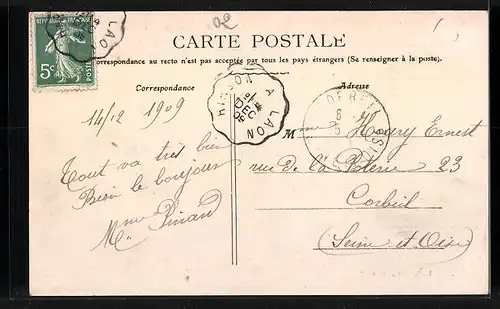 02
LAON
5c
CARTE POSTALE
Correspondance au recto n'est pas acceptée par tous les pays étrangers (Se renseigner à la poste).
Correspondance
Adresse
HIRSON A LAON
14/12 1909
Tout va très bien
Bien le bonjour
Mme
Mme Henry Ernest
rue de la Poterie 23
Corbeil
(Seine et Oise)